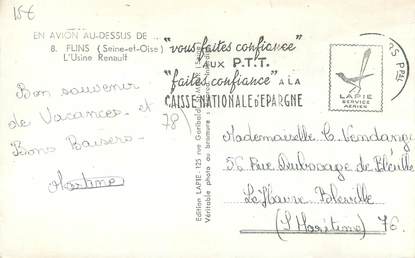 15€
EN AVION AU-DESSUS DE ...
8. FLINS (Seine-et-Oise)
L'Usine Renault
"vous faites confiance"
aux P.T.T.
"faites confiance" A LA
CAISSE NATIONALE D'EPARGNE
LAPIE
SERVICE
AERIEN
Bon souvenir
de Vacances et
Bons Baisers
Martine
78)
Edition LAPIE - 125 rue
Véritable photo au bromure
Mademoiselle C. Vendange
56 Rue Dubocage de Bléville
Le Havre Bléville
(S Maritime) 76.